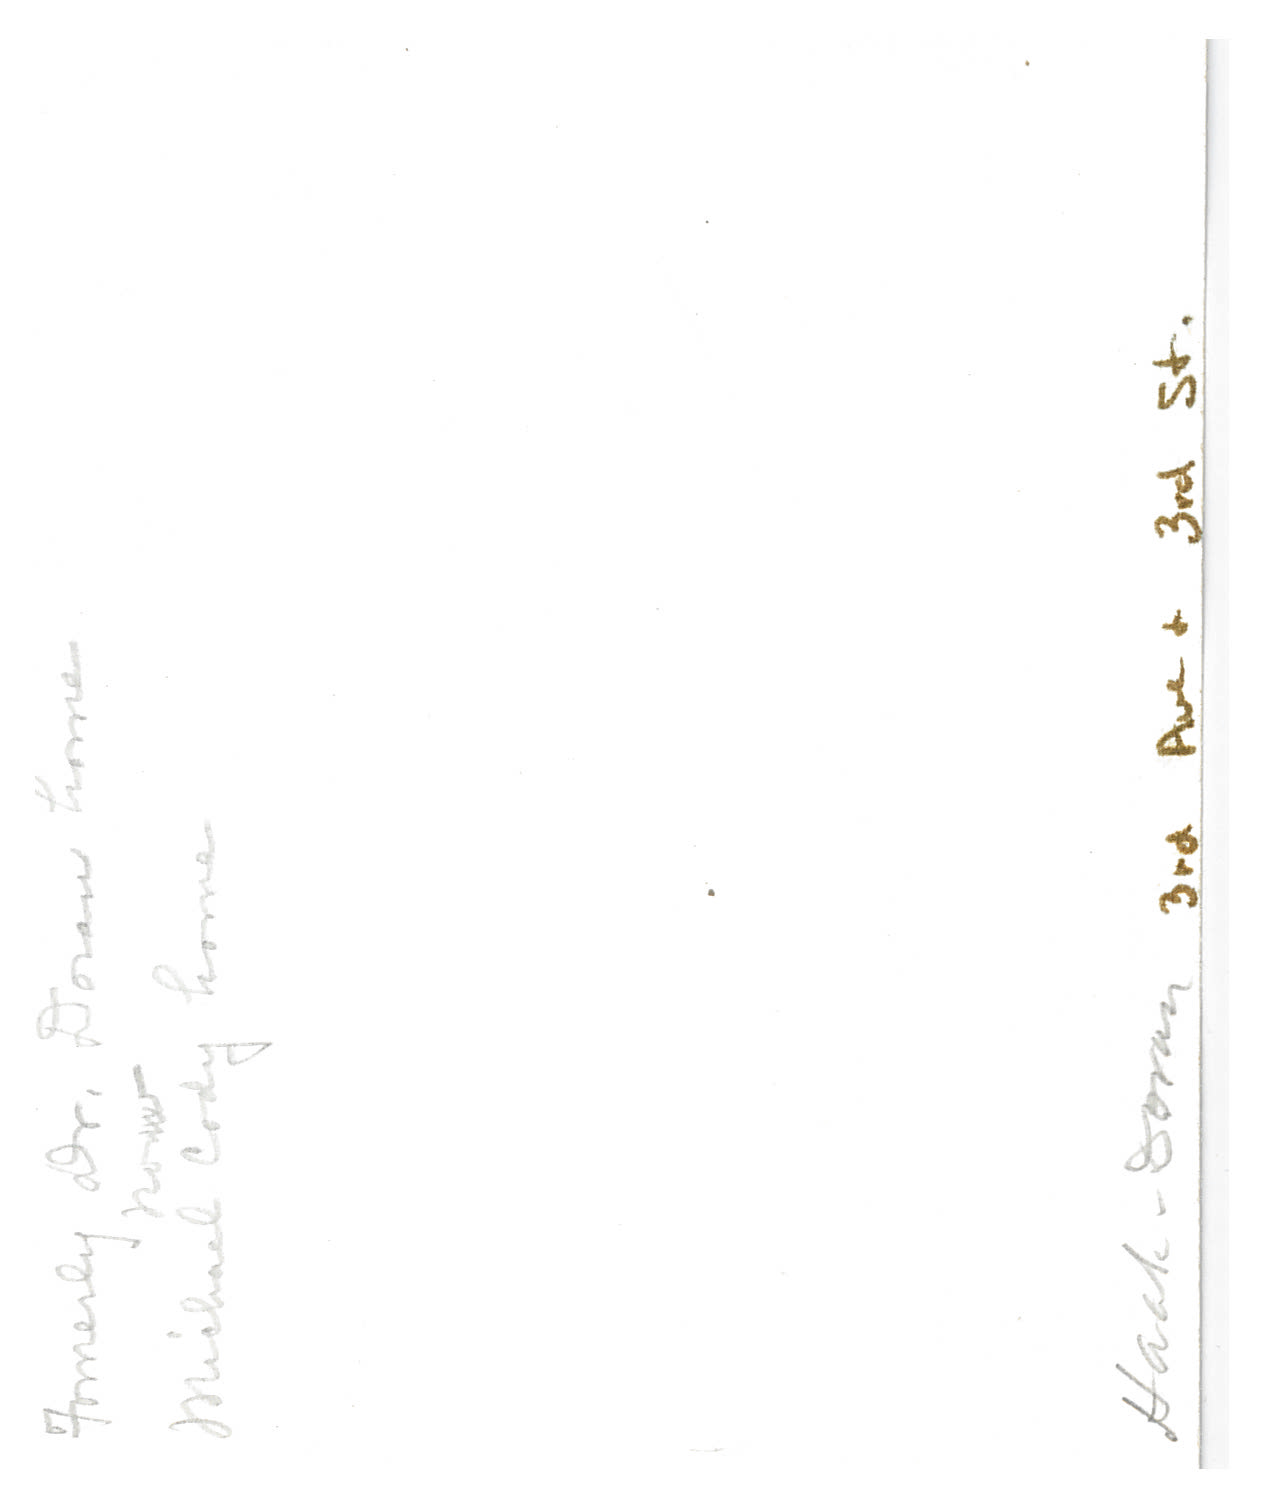 Fomerly Dr. Doran home
now
Michael Cody home
Haak - Doran 3rd Ave + 3rd St.